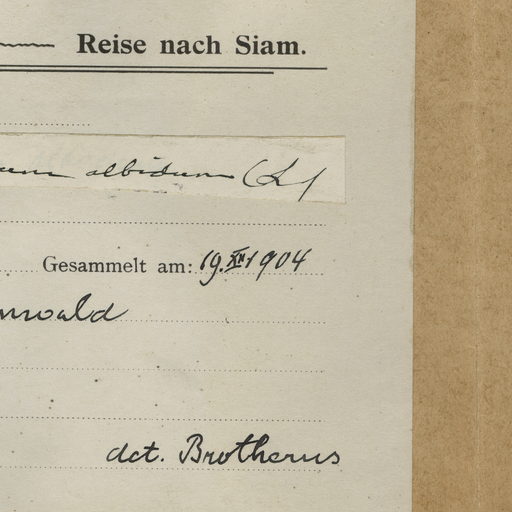 Reise nach Siam.
albidum (L)
Gesammelt am: 19.XII 1904
nwald
det. Brotherus